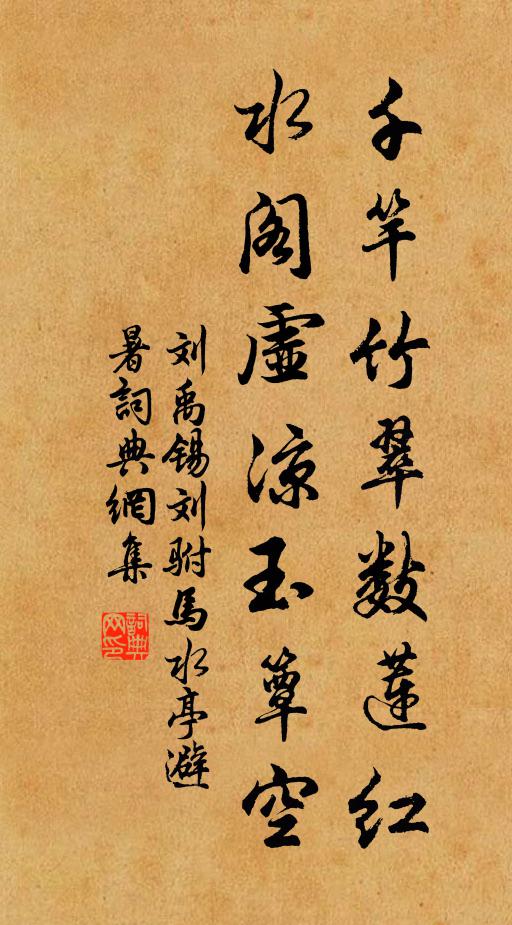 千竿竹翠数莲红
水阁虚凉玉簟空
刘禹锡刘駙馬水亭避
暑詞典網集
詞典网印